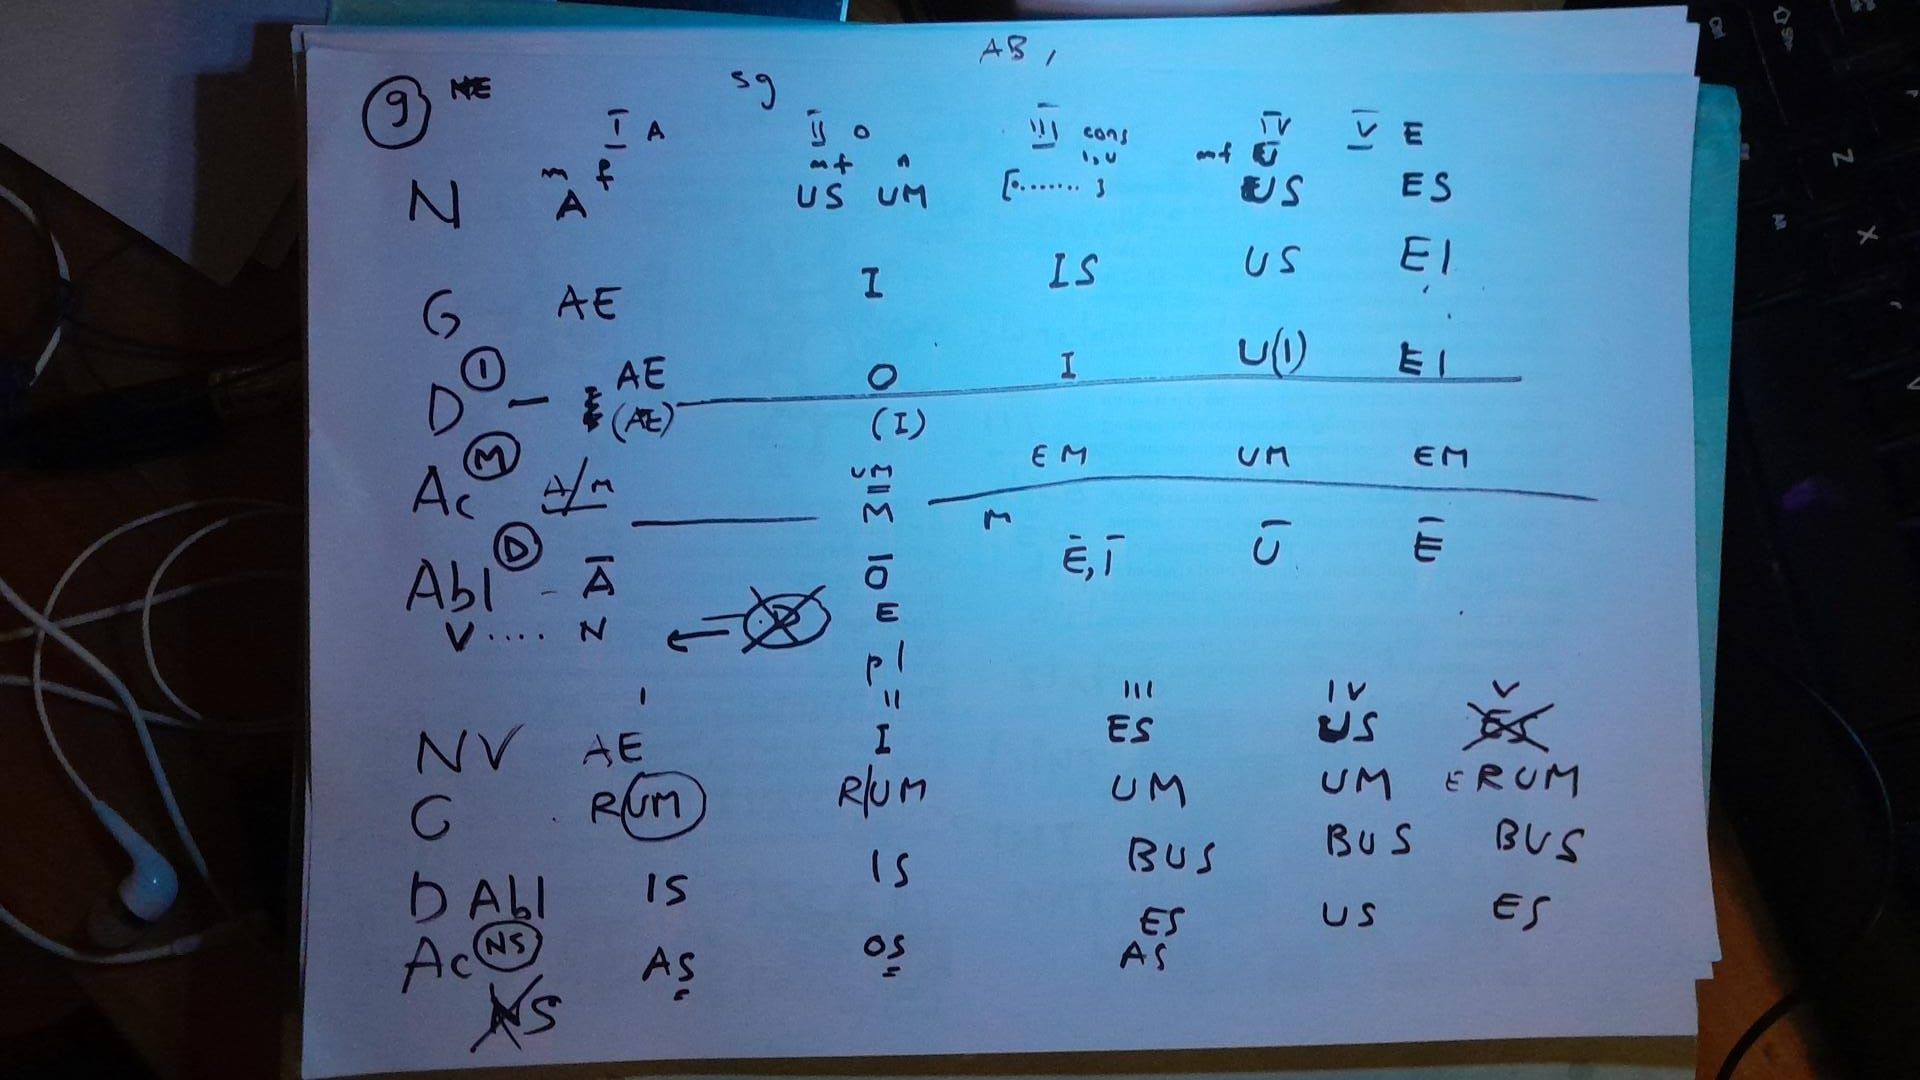 AB,
9 sg
I A II O III cons IV V E
m f mf n I,U mf U
N A US UM [.......] US ES
G AE I IS US EI
D I AE O I U(I) EI
(AE) (I)
Ac M A/M UM EM UM EM
M M
Abl D Ā Ō Ē,Ī Ū Ē
V .... N E
pl
I II III IV V
NV AE I ES US ES
G RUM R/UM UM UM ERUM
D Abl IS IS BUS BUS BUS
Ac NS AS OS ES US ES
AS
NS